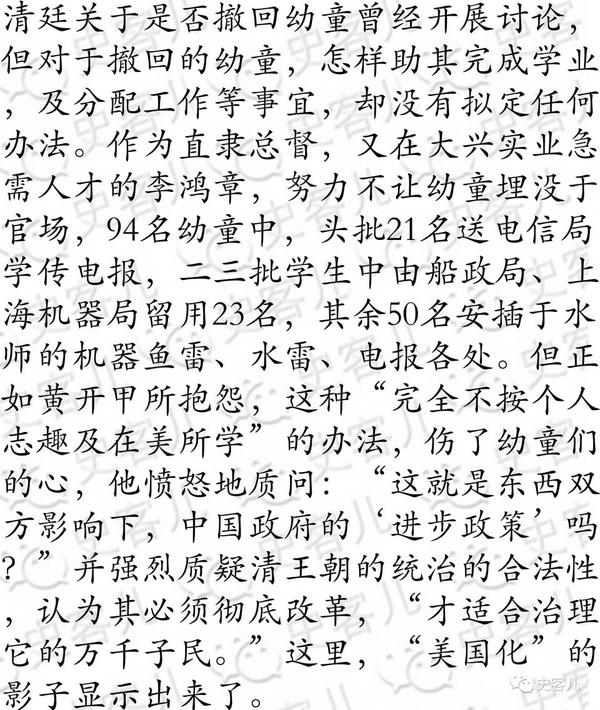 清廷关于是否撤回幼童曾经开展讨论，
但对于撤回的幼童，怎样助其完成学业
，及分配工作等事宜，却没有拟定任何
办法。作为直隶总督，又在大兴实业急
需人才的李鸿章，努力不让幼童埋没于
官场，94名幼童中，头批21名送电信局
学传电报，二三批学生中由船政局、上
海机器局留用23名，其余50名安插于水
师的机器鱼雷、水雷、电报各处。但正
如黄开甲所抱怨，这种“完全不按个人
志趣及在美所学”的办法，伤了幼童们
的心，他愤怒地质问：“这就是东西双
方影响下，中国政府的‘进步政策’吗
？”并强烈质疑清王朝的统治的合法性
，认为其必须彻底改革，“才适合治理
它的万千子民。”这里，“美国化”的
影子显示出来了。
史客儿